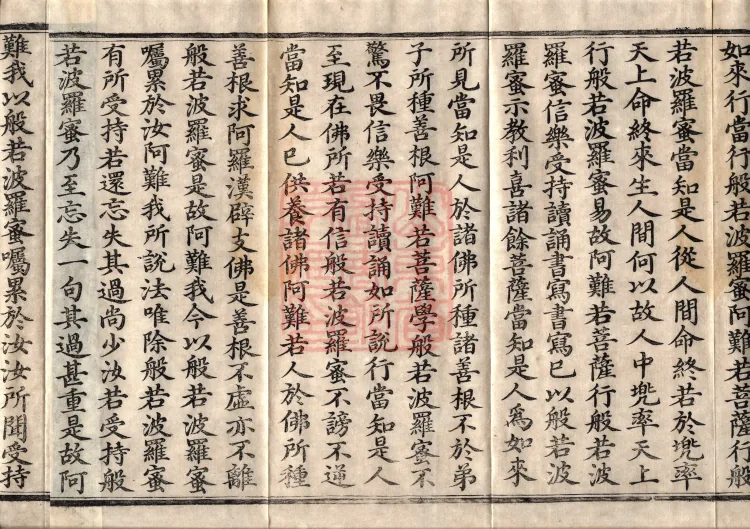 如來行當行般若波羅蜜阿難若菩薩行般
若波羅蜜當知是人從人間命終若於兜率
天上命終來生人間何以故人中兜率天上
行般若波羅蜜易故阿難若菩薩行般若波
羅蜜信樂受持讀誦書寫書寫已以般若波
羅蜜示教利喜諸餘菩薩當知是人爲如來
所見當知是人於諸佛所種諸善根不於弟
子所種善根阿難若菩薩學般若波羅蜜不
驚不畏信樂受持讀誦如所說行當知是人
至現在佛所若有信般若波羅蜜不謗不逆
當知是人已供養諸佛阿難若人於佛所種
善根求阿羅漢辟支佛是善根不虛亦不離
般若波羅蜜是故阿難我今以般若波羅蜜
囑累於汝阿難我所說法唯除般若波羅蜜
有所受持若還忘失其過尚少汝若受持般
若波羅蜜乃至忘失一句其過甚重是故阿
難我以般若波羅蜜囑累於汝汝所聞受持